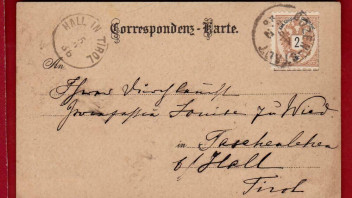 HALL IN TIROL
Correspondenz-Karte.
2
An
Ihrer Durchlaucht
Prinzessin Louise zu Wied
in Taschenlehen
b/ Hall
Tirol